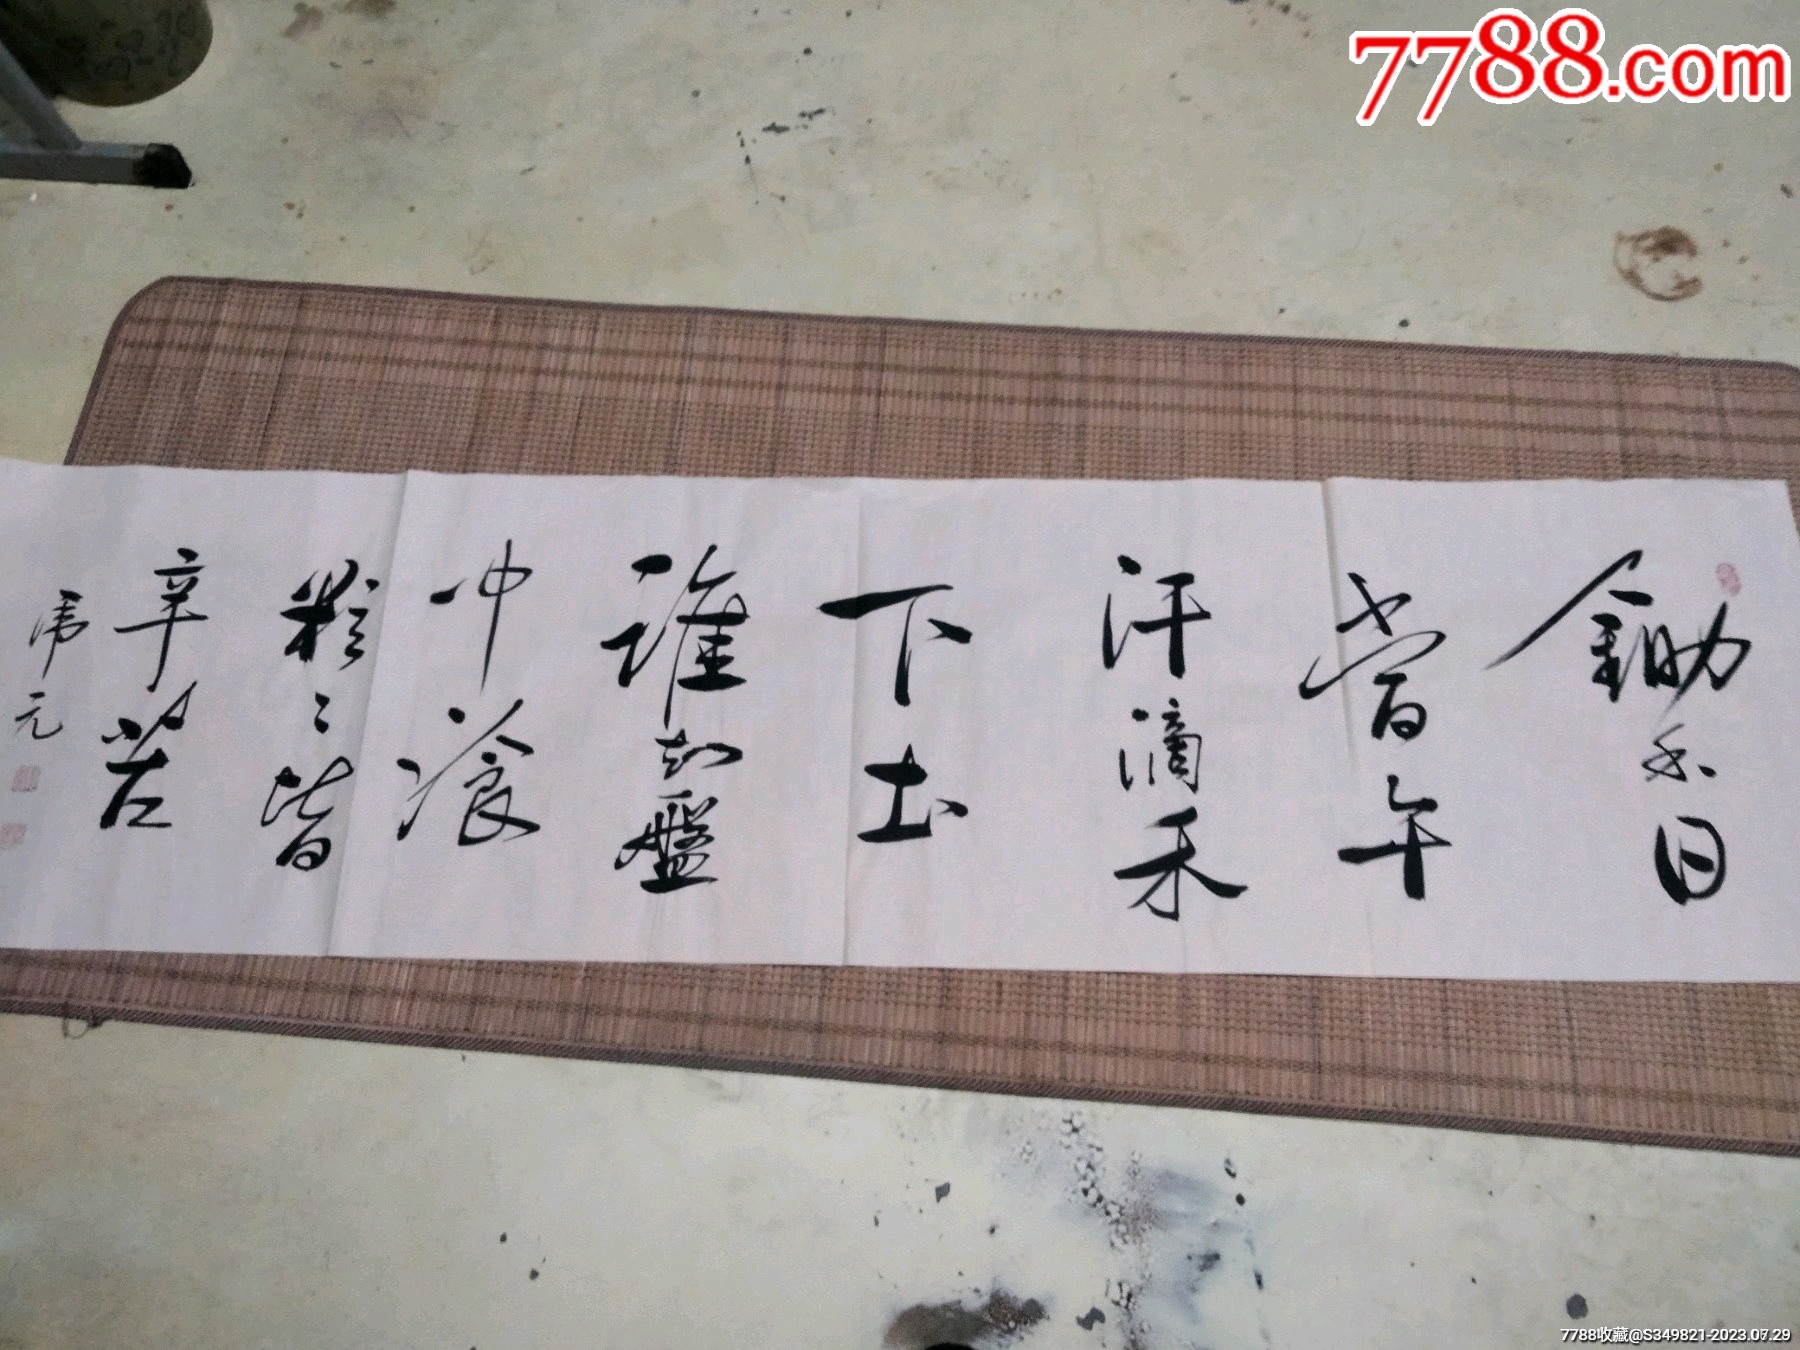 7788.com
鋤禾日
當午
汗滴禾
下土
誰知盤
中湌
粒〻皆
辛苦
元
7788收藏@S349821-2023.07.29